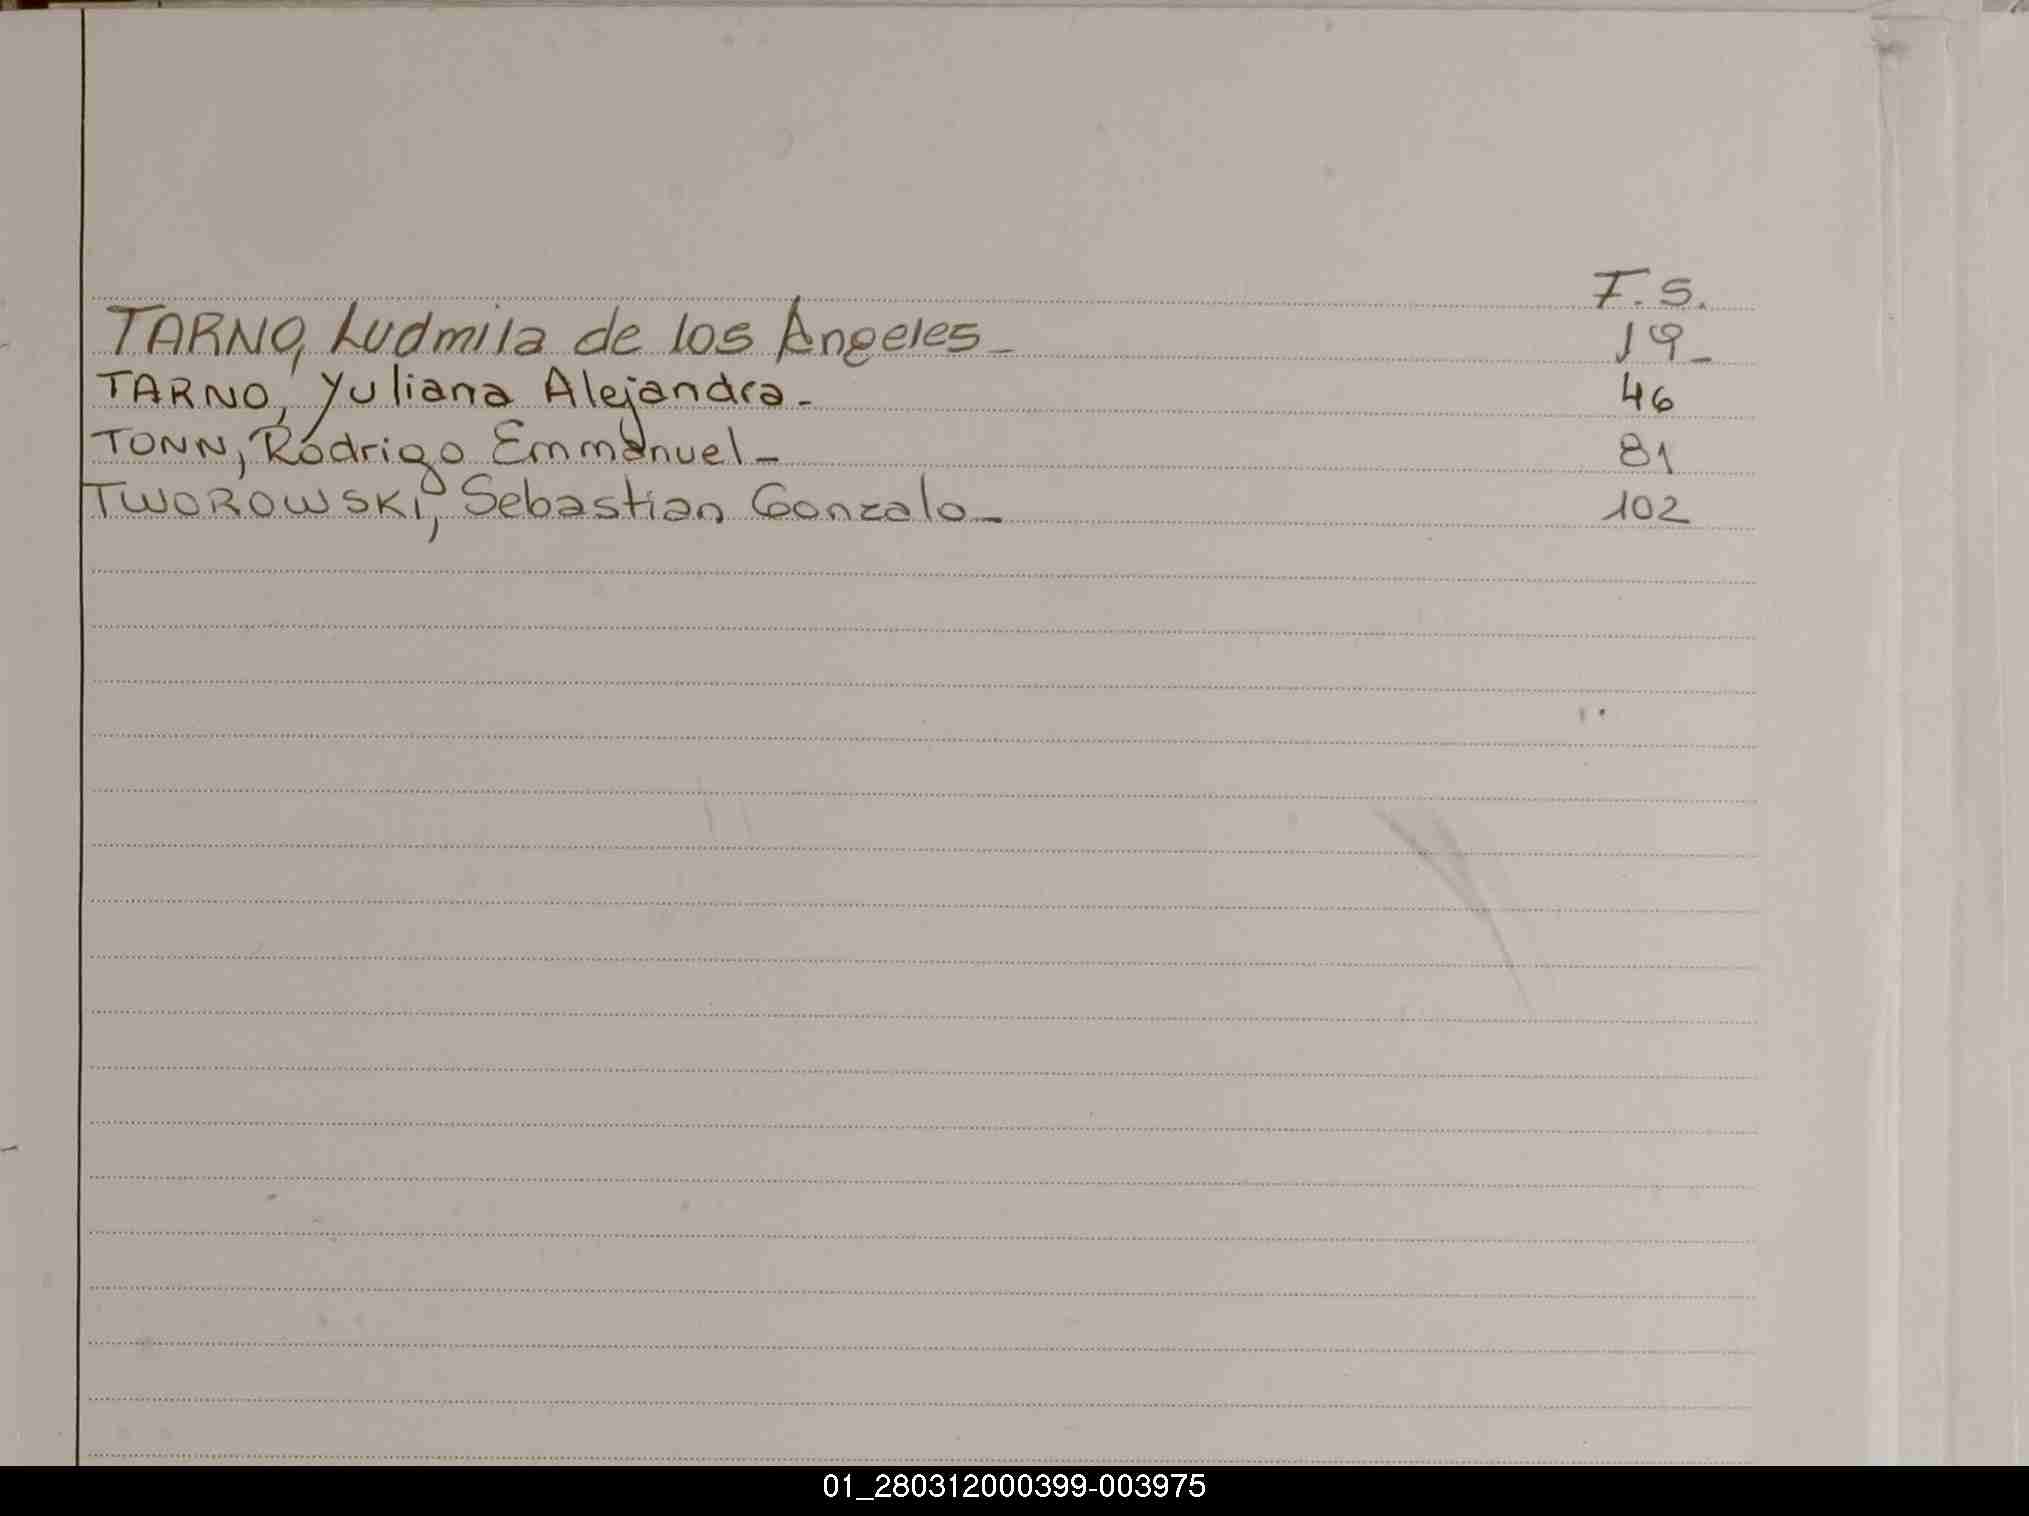 F.S.
TARNO, Ludmila de los Angeles_ 19_
TARNO, Yuliana Alejandra_ 46
TONN, Rodrigo Emmanuel_ 81
TWOROWSKI, Sebastian Gonzalo_ 102
01_280312000399-003975